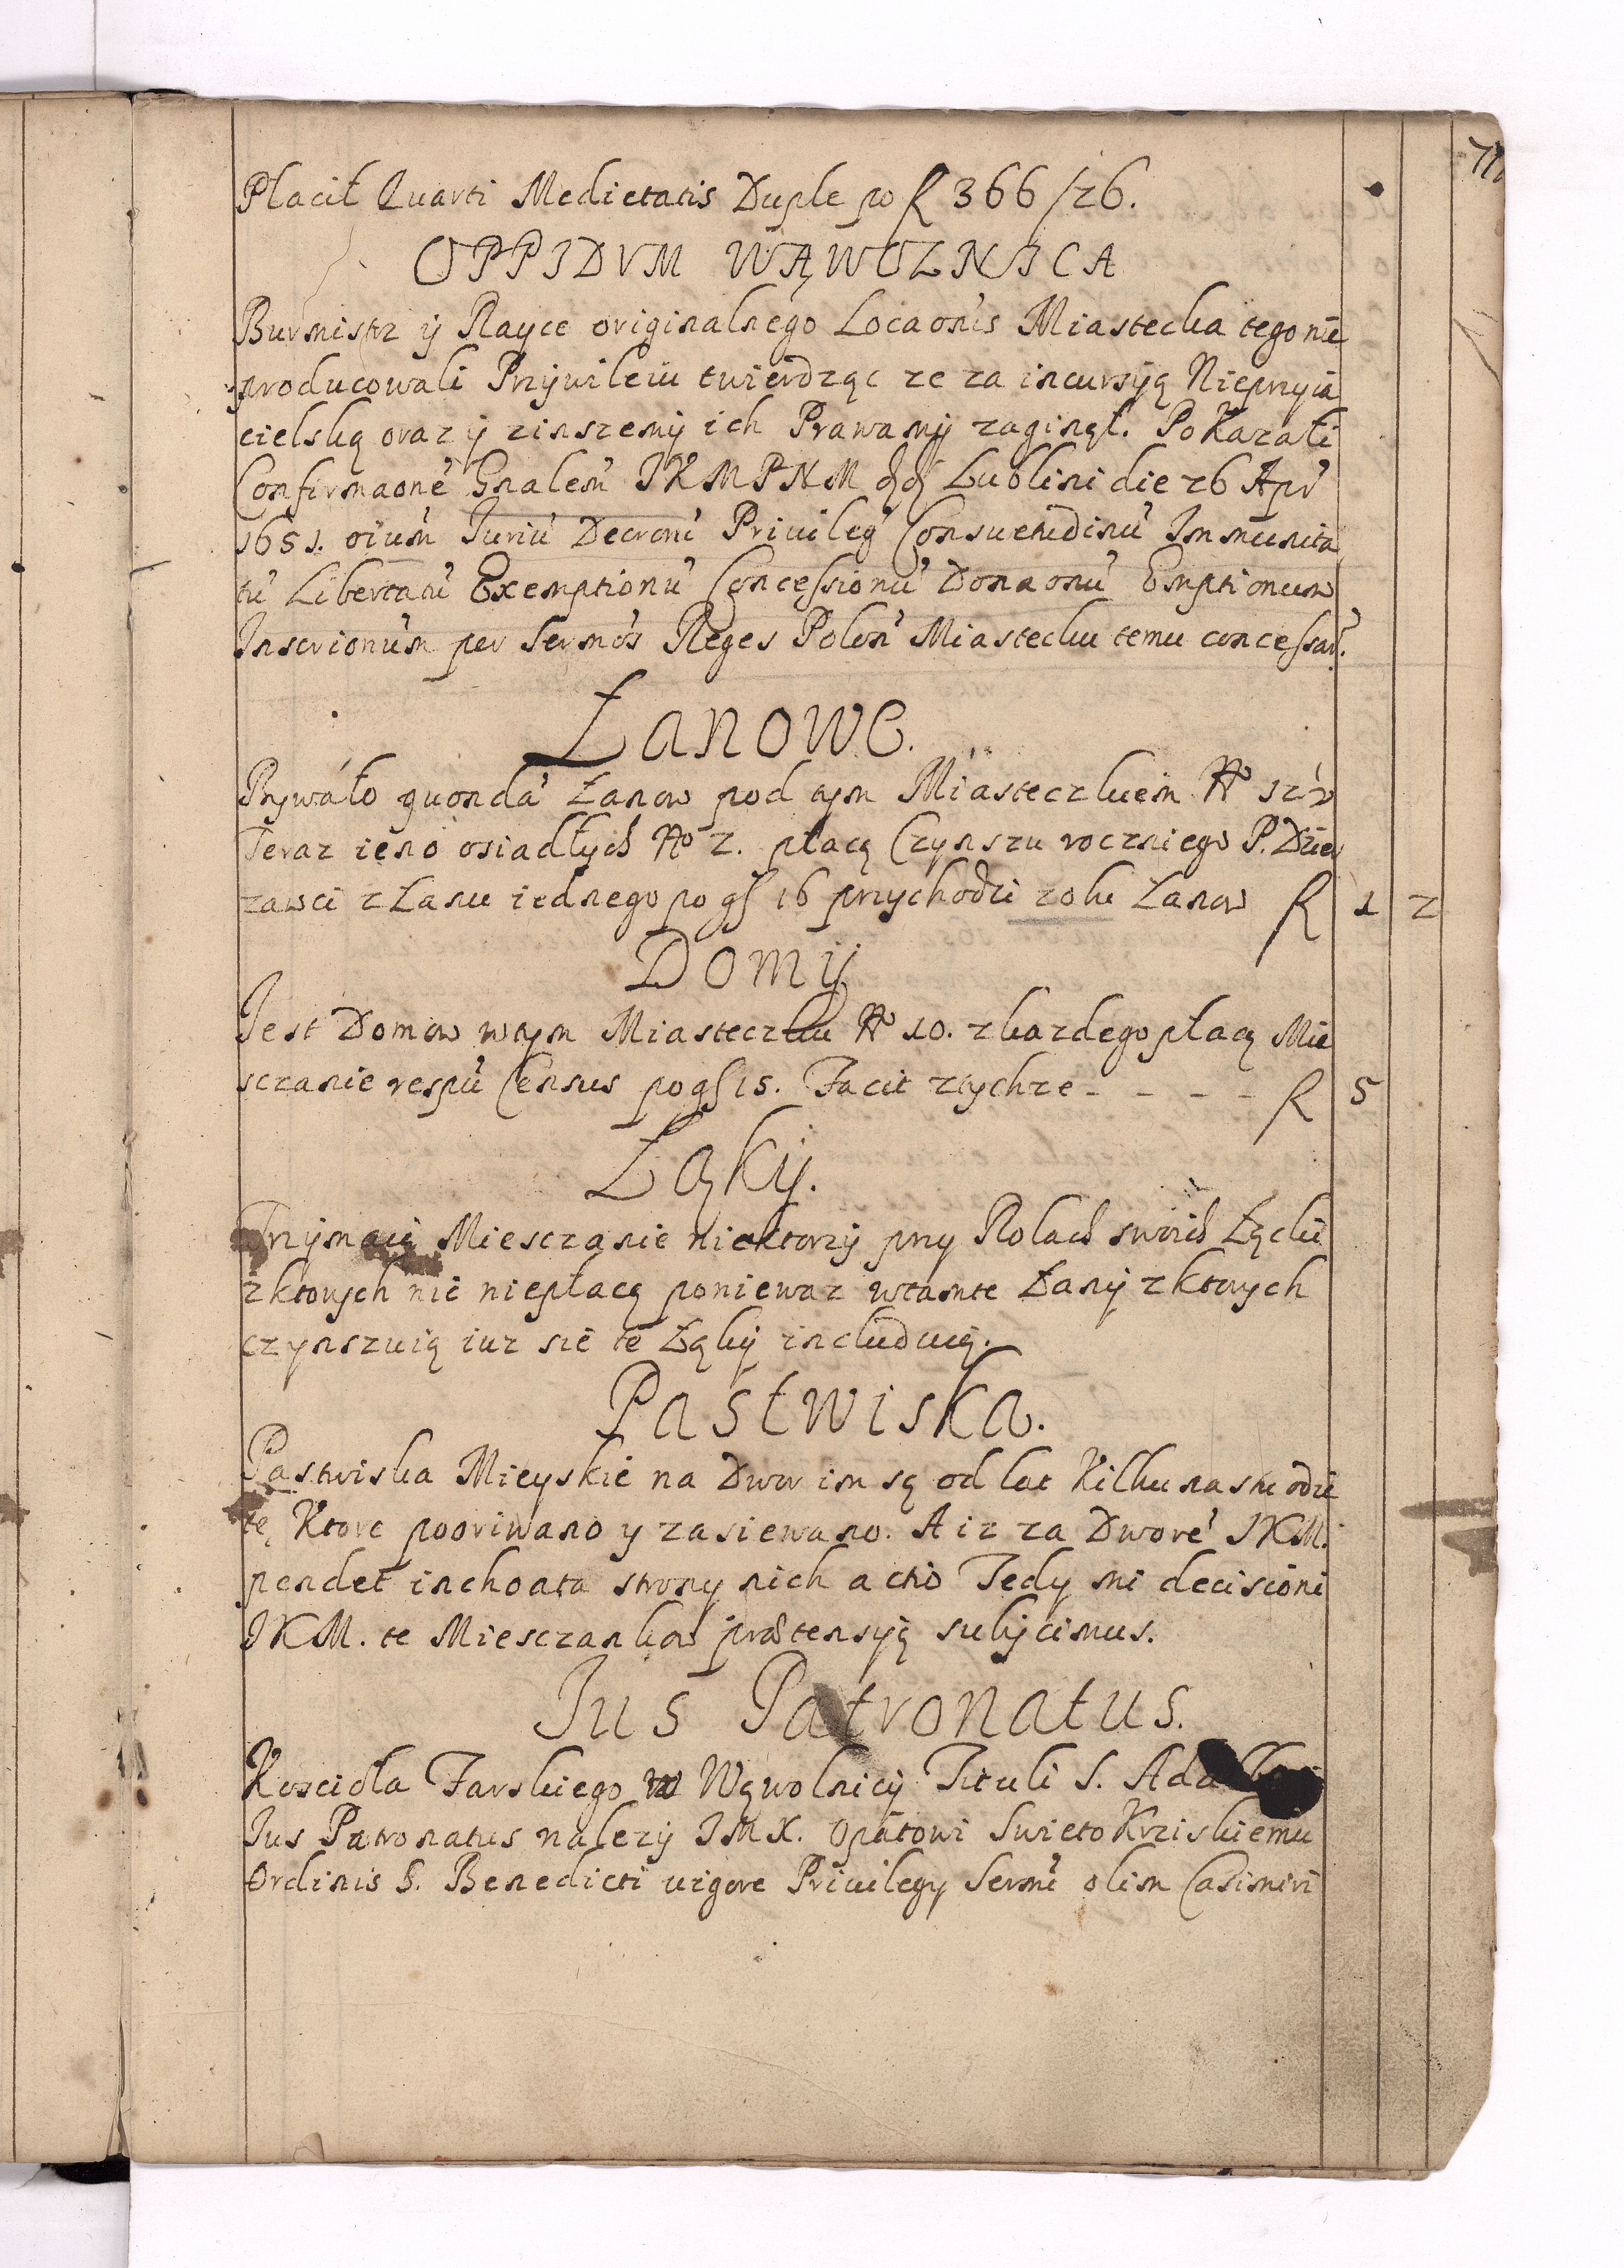 Placił Quarti Medietatis Duple po fl 366/26.
OPPIDVM WĄWOLNICA
Burmistrz ÿ Rayce originalnego Locaonis Miastecka tego nie
producowali Przÿwileiu twierdząc ze za incursÿą Nieprzyia
cielską oraz ÿ zinszemÿ ich Prawamÿ zaginął. PoKazali
Confirmaone Gnalem JKMPNM dd Lublini die 26 Apr
1651. oium Iuriu Decretoru Priuileg Consuetudinu Immunita
tu Libertatu Exemptionu Concessionu Donaonu Emptionum
Inscrionum per Sermos Reges Polon Miastecku temu concessar.
Łanowe.
Bywało quonda Łanow pod tym Miasteczkiem No 12½
Teraz ieno osiadłych No 2. płacą Czynszu roczniego P. Dzier
zawci z Łanu iednego po gs 16 przychodzi zobu Łanow fl 1 2
Domÿ
Jest Domow wtym Miasteczku No 10. zkazdego płacą Mie
sczanie respu Census po gs 15. Facit ztychze - - - - fl 5
Łąkÿ.
Trzÿmaią Miesczanie niektorzÿ przy Rolach swoich Łącki
zktorych nic niepłacą poniewaz wtamte Łanÿ zktorych
czynszuią iuz sie te Łąkÿ includuią.
Pastwiska.
Pastwiska Mieyskie na Dwor im są od lat Kilkunastu odie
te, Ktore pooriwano y zasiewano. A iz za Dwore JKM.
pendet inchoata strony nich actio Tedy mi decisioni
JKM. te Miesczankow prætensÿą subijcimus.
Jus Patronatus.
Koscioła Farskiego w Wąwolnicÿ Tituli S.
Ius Patronatus nalezÿ JMX. Opatowi Swieto Krziskiemu
Ordinis S. Benedicti uigore Priuilegy Sermi olim Casimiri